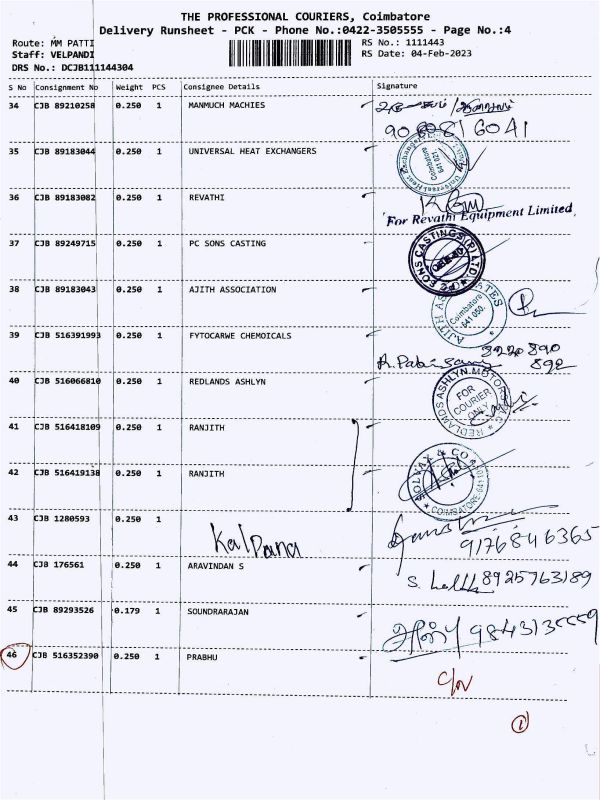 THE PROFESSIONAL COURIERS, Coimbatore
Delivery Runsheet - PCK - Phone No.:0422-3505555 - Page No.:4
Route: MM PATTI
Staff: VELPANDI
DRS No.: DCJB111144304
RS No.: 1111443
RS Date: 04-Feb-2023
S No Consignment No Weight PCS Consignee Details Signature
34 CJB 89210258 0.250 1 MANMUCH MACHIES
35 CJB 89183044 0.250 1 UNIVERSAL HEAT EXCHANGERS
Coimbatore
641 021
36 CJB 89183082 0.250 1 REVATHI
For Revathi Equipment Limited,
37 CJB 89249715 0.250 1 PC SONS CASTING
38 CJB 89183043 0.250 1 AJITH ASSOCIATION
AJITH ASSOCIATES
Coimbatore
641 050.
39 CJB 516391993 0.250 1 FYTOCARWE CHEMOICALS
8220 890
892
40 CJB 516066810 0.250 1 REDLANDS ASHLYN
REDLANDS ASHLYN MOTORS
FOR
COURIER
ONLY
41 CJB 516418109 0.250 1 RANJITH
42 CJB 516419138 0.250 1 RANJITH
SOLVAX & CO
COIMBATORE
43 CJB 1280593 0.250 1
Kalpana
9176846365
44 CJB 176561 0.250 1 ARAVINDAN S
8925763189
45 CJB 89293526 0.179 1 SOUNDRARAJAN
46 CJB 516352390 0.250 1 PRABHU
1